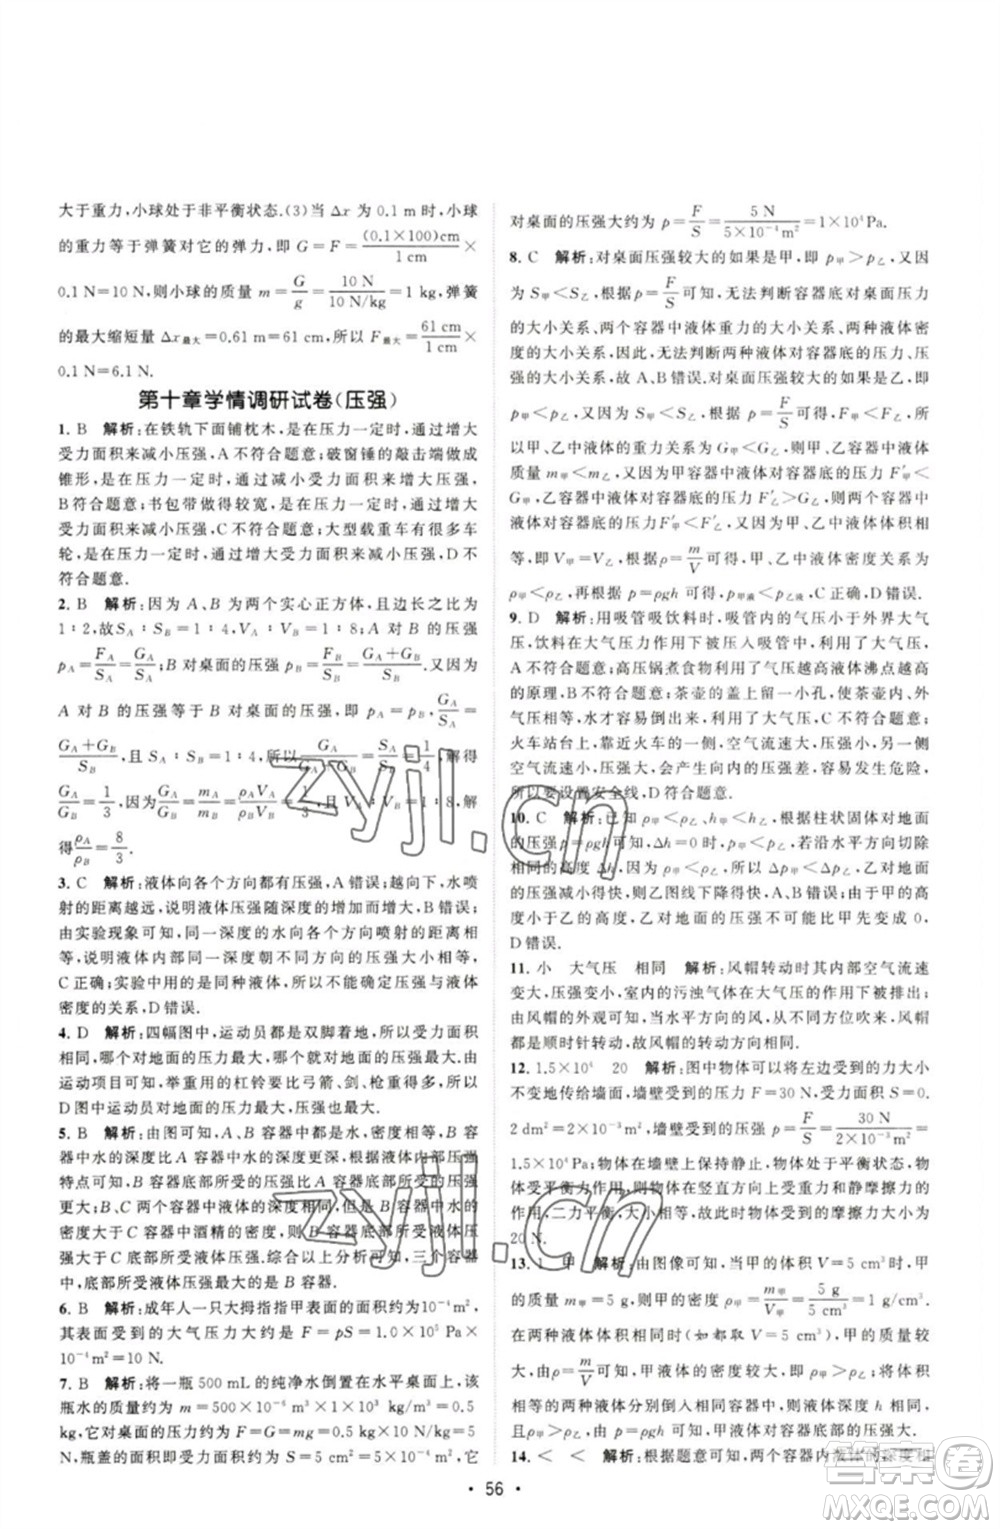 大于重力,小球处于非平衡状态.(3)当 Δx 为 0.1 m 时,小球
的重力等于弹簧对它的弹力,即 G=F=(0.1×100)cm/1 cm×
0.1 N=10 N,则小球的质量 m=G/g=10 N/10 N/kg=1 kg,弹簧
的最大缩短量 Δx最大=0.61 m=61 cm,所以 F最大=61 cm/1 cm×
0.1 N=6.1 N.
第十章学情调研试卷(压强)
1. B 解析:在铁轨下面铺枕木,是在压力一定时,通过增大
受力面积来减小压强,A 不符合题意;破窗锤的敲击端做成
锥形,是在压力一定时,通过减小受力面积来增大压强,
B 符合题意;书包带做得较宽,是在压力一定时,通过增大
受力面积来减小压强,C 不符合题意;大型载重车有很多车
轮,是在压力一定时,通过增大受力面积来减小压强,D 不
符合题意.
2. B 解析:因为 A、B 为两个实心正方体,且边长之比为
1∶2,故 SA∶SB=1∶4,VA∶VB=1∶8;A 对 B 的压强
pA=FA/SA=GA/SA,B 对桌面的压强 pB=FB/SB=GA+GB/SB.又因为
A 对 B 的压强等于 B 对桌面的压强,即 pA=pB,则 GA/SA=
GA+GB/SB,且 SA∶SB=1∶4,所以 GA/GA+GB=SA/SB=1/4,解得
GA/GB=1/3,因为 GA/GB=mA/mB=ρAVA/ρBVB=1/3,且 VA∶VB=1∶8,解
得 ρA/ρB=8/3.
3. C 解析:液体向各个方向都有压强,A 错误;越向下,水喷
射的距离越远,说明液体压强随深度的增加而增大,B 错误;
由实验现象可知,同一深度的小孔向各个方向喷射的距离
相同,说明液体内部同一深度处向各个方向的压强相等,
C 正确;实验用的是同种液体,没有探究液体内部压强与液体
密度的关系,D 错误.
4. D 解析:四幅图中,运动员都是双脚着地,所以受力面积
相同,举重运动员对地面的压力等于人和杠铃的总重,由于
运动项目中的杠铃要比弓箭、剑、球等重力大很多,所以
D 图中运动员对地面的压力最大,压强最大.
5. B 解析:由图可知,A、B 容器中都是水,水的密度相同,B 容
器中水的深度比 A 容器中水的深度深,所以根据液体压强
特点可知,B 容器底部所受液体的压强比 A 容器底部所受液体
压强大;B、C 两个容器中液体的深度相同,但是 B 容器中水的
密度大于 C 容器中酒精的密度,所以 B 容器底部所受液体
压强大于 C 底部所受液体压强.综合以上分析可知,三个容器
中,底部所受液体压强最大的是 B 容器.
6. B 解析:成年人一只大拇指指甲表面的面积约为10⁻⁴ m²,其
表面受到的大气压力大约是 F=pS=1.0×10⁵ Pa×
10⁻⁴m²=10 N.
7. B 解析:将一瓶 500 mL 的纯净水倒置在水平桌面上,该
瓶水的质量约为 m=500×10⁻⁶×1.0×10³ kg=0.5
kg,瓶对桌面的压力约为 F=G=mg=0.5 kg×10 N/kg=
5 N,瓶盖的面积即受力面积约为 S=5 cm²=5×10⁻⁴ m²,
对桌面的压强大约为 p=F/S=5 N/5×10⁻⁴m²=1×10⁴Pa.
8. C 解析:对桌面压强较大的如果是甲,即 p甲>p乙,又因为
S甲<S乙,所以根据 p=F/S可知,无法判断容器底部对桌面压力
的大小关系、两个容器中液体重力的大小关系、两个容器中液体质量
的大小关系,无法判断两种液体对容器底的压力的大小关
系,所以 A、B 错误.对桌面压强较大的如果是乙,即
p甲<p乙,又因为 S甲<S乙,根据 p=F/S可得,F甲<F乙,所
以甲、乙中液体的重力关系为 G甲<G乙,甲、乙中液体的
质量 m甲<m乙,因为甲容器中液体对容器底的压力 F′甲<
G甲,乙容器中液体对容器底的压力 F′乙>G乙,则两种液体
对容器底的压力关系为 F′甲<F′乙,因为甲、乙中液体体积相
等,即 V甲=V乙,根据 ρ=m/V可得,甲、乙液体密度关系为
ρ甲<ρ乙.再根据 p=ρgh 可得,p甲液<p乙液,C 正确,D 错误.
9. D 解析:用吸管吸饮料时,吸管内的气压小于外界大气
压,饮料在大气压的作用下被压入吸管中,利用了大气压,
A 不符合题意;高压锅煮食物利用了气压越高液体沸点越高
的原理,B 不符合题意;茶壶的盖上留一小孔,使壶内外大
气压相等,水才容易倒出来,利用了大气压,C 不符合题意;
火车站台上,靠近火车的一侧,空气流速大,压强小,另一侧
空气流速小,压强大,会产生向火车的压强差,造成危险,
所以要设置安全线,D 符合题意.
10. C 解析:已知 ρ甲<ρ乙、h甲<h乙,根据柱状固体对地面的
压强 p=ρgh 可知,Δh=0 时,p甲<p乙,若沿水平方向切去
相同的高度,根据 Δp=ρgΔh 可知,甲减小得慢,乙对地
面的压强减小得快,则乙图线下降得快.由于甲的高
度小于乙的高度,乙对地面的压强不可能比甲先变成 0,
D 错误.
11. 小 大气压 相同 解析:风帽转动时其内部空气流速
变大,压强变小,室内的污浊气体在大气压的作用下排出.
由风帽的外观可知,当风帽顺时针转动,当风向相反时也
都是顺时针转动,故风帽的转动方向相同.
12. 1.5×10⁴ 20 解析:图中物体在左边受到的力大小
不变地传给墙面,墙壁受到的压力 F=30 N,受力面积 S=0.
2 dm²=2×10⁻³ m²,墙壁受到的压强为 p=F/S=30 N/2×10⁻³m²=
1.5×10⁴Pa;物体在墙壁上保持静止,物体处于平衡状态,物体
受平衡力作用,则物体在竖直方向上受到的重力和摩擦力
是二力平衡,大小相等,故物体受到的摩擦力大小为
20 N.
13. 1 甲 解析:由图像可知,当体积都为 5 cm³ 时,甲的
质量 m甲=5 g,则甲的密度为 ρ甲=m甲/V甲=5 g/5 cm³=1 g/cm³;
当两种液体体积相同时(如都取 V=5 cm³),甲的质量较
大,由 ρ=m/V可知,甲液体的密度较大,即 ρ甲>ρ乙,则相同
体积的两种液体分别倒入相同容器后,甲对容器底部的
压强较大.
14. < < 解析:根据题意可知,两个容器内液体的深度相
· 56 ·
zyjl.cn
zyjl.cn
答案圈
MXQE.COM